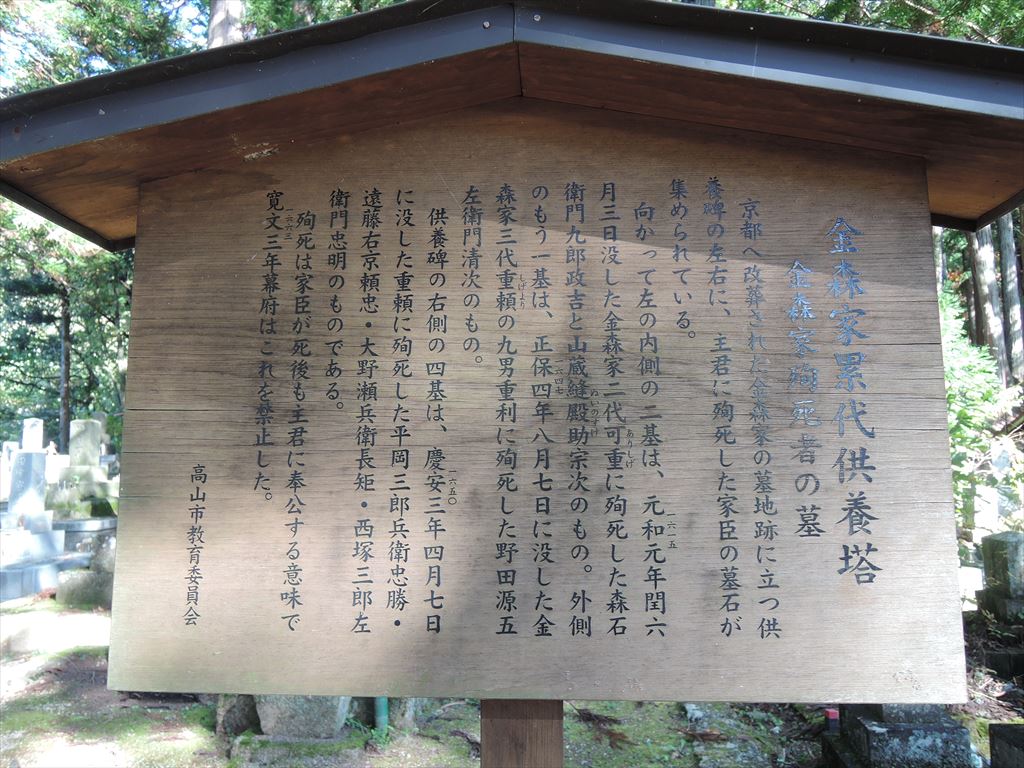 金森家累代供養塔
金森家殉死者の墓
京都へ改葬された金森家の墓地跡に立つ供
養碑の左右に、主君に殉死した家臣の墓石が
集められている。
向かって左の内側の二基は、元和元年閏六
一六一五
月三日没した金森家二代可重に殉死した森石
ありしげ
衛門九郎政吉と山蔵縫殿助宗次のもの。外側
ぬいのすけ
のもう一基は、正保四年八月七日に没した金
一六四七
森家三代重頼の九男重利に殉死した野田源五
しげより
左衛門清次のもの。
供養碑の右側の四基は、慶安三年四月七日
一六五〇
に没した重頼に殉死した平岡三郎兵衛忠勝・
遠藤右京頼忠・大野瀬兵衛長矩・西塚三郎左
衛門忠明のものである。
殉死は家臣が死後も主君に奉公する意味で
寛文三年幕府はこれを禁止した。
一六六三
高山市教育委員会